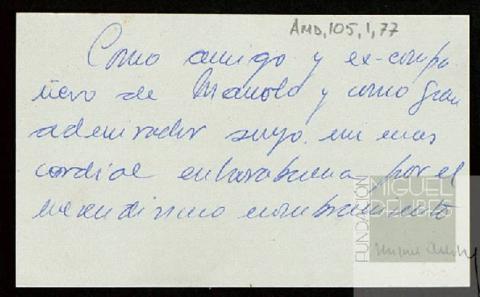 AMD, 105, 1, 77
Como amigo y ex-compa
ñero de Manolo y como gran
admirador suyo. mi mas
cordial enhorabuena, por el
merecidisimo nombramiento
FUNDACIÓN
MIGUEL
DELIBES